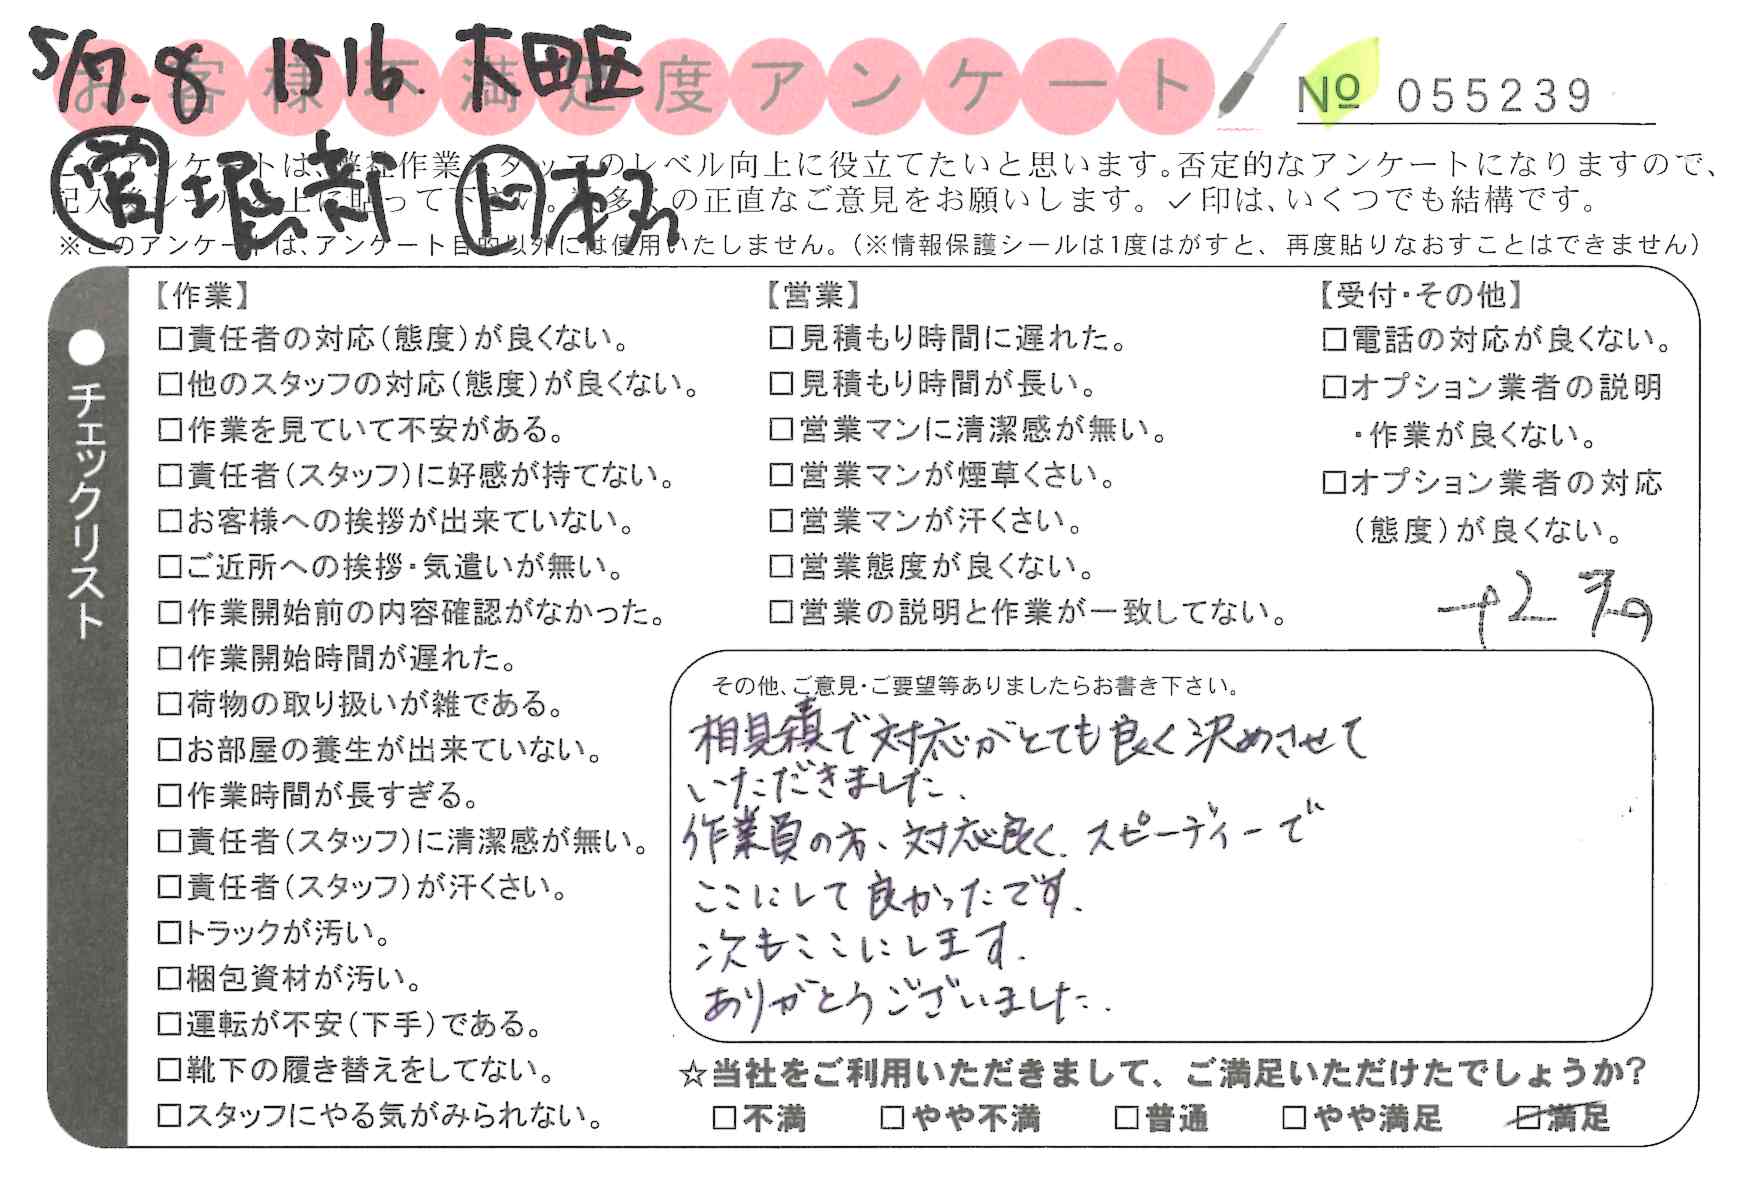 5/7.8 1516. 大田区
お客様不満足度アンケート
№ 055239
このアンケートは、弊社作業スタッフのレベル向上に役立てたいと思います。否定的なアンケートになりますので、
記入後シールを上に貼って下さい。数多くの正直なご意見をお願いします。✓印は、いくつでも結構です。
※このアンケートは、アンケート目的以外には使用いたしません。（※情報保護シールは1度はがすと、再度貼りなおすことはできません）
●チェックリスト
【作業】
□責任者の対応（態度）が良くない。
□他のスタッフの対応（態度）が良くない。
□作業を見ていて不安がある。
□責任者（スタッフ）に好感が持てない。
□お客様への挨拶が出来ていない。
□ご近所への挨拶・気遣いが無い。
□作業開始前の内容確認がなかった。
□作業開始時間が遅れた。
□荷物の取り扱いが雑である。
□お部屋の養生が出来ていない。
□作業時間が長すぎる。
□責任者（スタッフ）に清潔感が無い。
□責任者（スタッフ）が汗くさい。
□トラックが汚い。
□梱包資材が汚い。
□運転が不安（下手）である。
□靴下の履き替えをしてない。
□スタッフにやる気がみられない。
【営業】
□見積もり時間に遅れた。
□見積もり時間が長い。
□営業マンに清潔感が無い。
□営業マンが煙草くさい。
□営業マンが汗くさい。
□営業態度が良くない。
□営業の説明と作業が一致してない。
【受付・その他】
□電話の対応が良くない。
□オプション業者の説明
・作業が良くない。
□オプション業者の対応
（態度）が良くない。
その他、ご意見・ご要望等ありましたらお書き下さい。
相見積で対応がとても良く決めさせて
いただきました.
作業員の方、対応良く、スピーディーで
ここにして良かったです.
次もここにします.
ありがとうございました.
☆当社をご利用いただきまして、ご満足いただけたでしょうか？
□不満 □やや不満 □普通 □やや満足 □満足